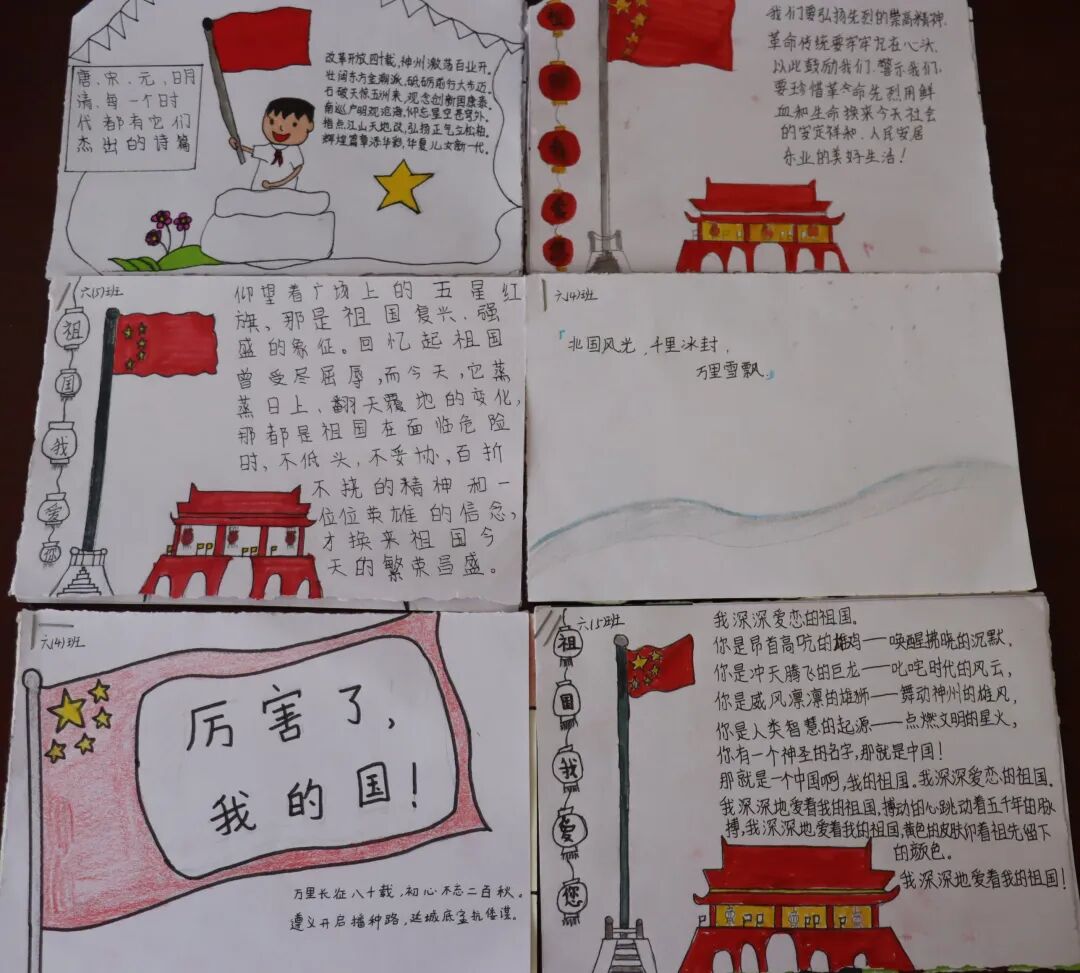 唐、宋、元、明
清,每一个时
代都有它们
杰出的诗篇
改革开放四十载,神州激荡百业开。
壮阔东方金潮涌,砥砺前行大布迈。
石破天惊五洲来,观念创新国康泰。
南巡户明观沧海,仰忘星空苍穹外。
指点江山天地改,弘扬正气立松柏。
辉煌篇章添华彩,华夏儿女新一代。
我们要弘扬先烈的崇高精神,
革命传统要牢牢记在心头,
以此鼓励我们.警示我们,
要珍惜革命先烈用鲜
血和生命换来今天社会
的安定祥和、人民安居
乐业的美好生活!
祖
国
我
爱
您
六(5)班
祖
国
我
爱
你
仰望着广场上的五星红
旗、那是祖国复兴、强
盛的象征。回忆起祖国
曾受尽屈辱,而今天,它蒸
蒸日上、翻天覆地的变化,
那都是祖国在面临危险
时,不低头,不妥协,百折
不挠的精神和一
位位英雄的信念,
才换来祖国今
天的繁荣昌盛。
六(4)班
「北国风光,千里冰封,
万里雪飘」
六(4)班
厉害了,
我的国!
万里长征八十载,初心不忘二百秋。
遵义开启播种路,延城底定抗倭谍。
六(5)班
祖
国
我
爱
您
我深深爱恋的祖国。
你是昂首高吭的雄鸡——唤醒拂晓的沉默,
你是冲天腾飞的巨龙——叱咤时代的风云,
你是威风凛凛的雄狮——舞动神州的雄风,
你是人类智慧的起源——点燃文明的星火,
你有一个神圣的名字,那就是中国!
那就是一个中国啊,我的祖国。我深深爱恋的祖国。
我深深地爱着我的祖国,搏动的心跳动着五千年的脉
搏,我深深地爱着我的祖国,黄色的皮肤仰着祖先留下
的颜色。
我深深地爱着我的祖国!